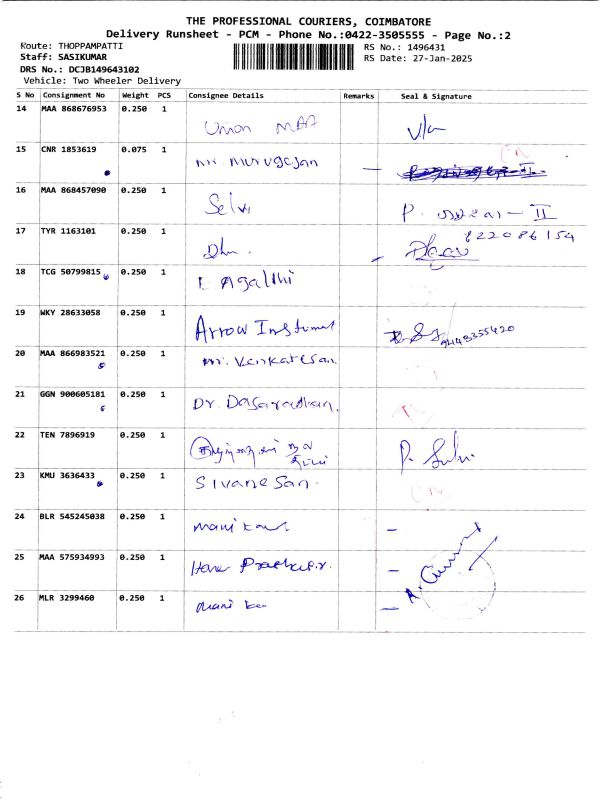 THE PROFESSIONAL COURIERS, COIMBATORE
Delivery Runsheet - PCM - Phone No.:0422-3505555 - Page No.:2
Route: THOPPAMPATTI
RS No.: 1496431
Staff: SASIKUMAR
RS Date: 27-Jan-2025
DRS No.: DCJB149643102
Vehicle: Two Wheeler Delivery
S No Consignment No Weight PCS Consignee Details Remarks Seal & Signature
14 MAA 868676953 0.250 1
Union MAA
15 CNR 1853619 0.075 1
Mr. Murugesan
16 MAA 868457090 0.250 1
Selvi
17 TYR 1163101 0.250 1
822086154
18 TCG 50799815 0.250 1
Agalthi
19 WKY 28633058 0.250 1
Arrow Instument
9448355420
20 MAA 866983521 0.250 1
Mr. Venkatesan
21 GGN 900605181 0.250 1
Dr. Dasarathan.
22 TEN 7896919 0.250 1
23 KMU 3636433 0.250 1
Sivanesan.
24 BLR 545245038 0.250 1
25 MAA 575934993 0.250 1
26 MLR 3299460 0.250 1